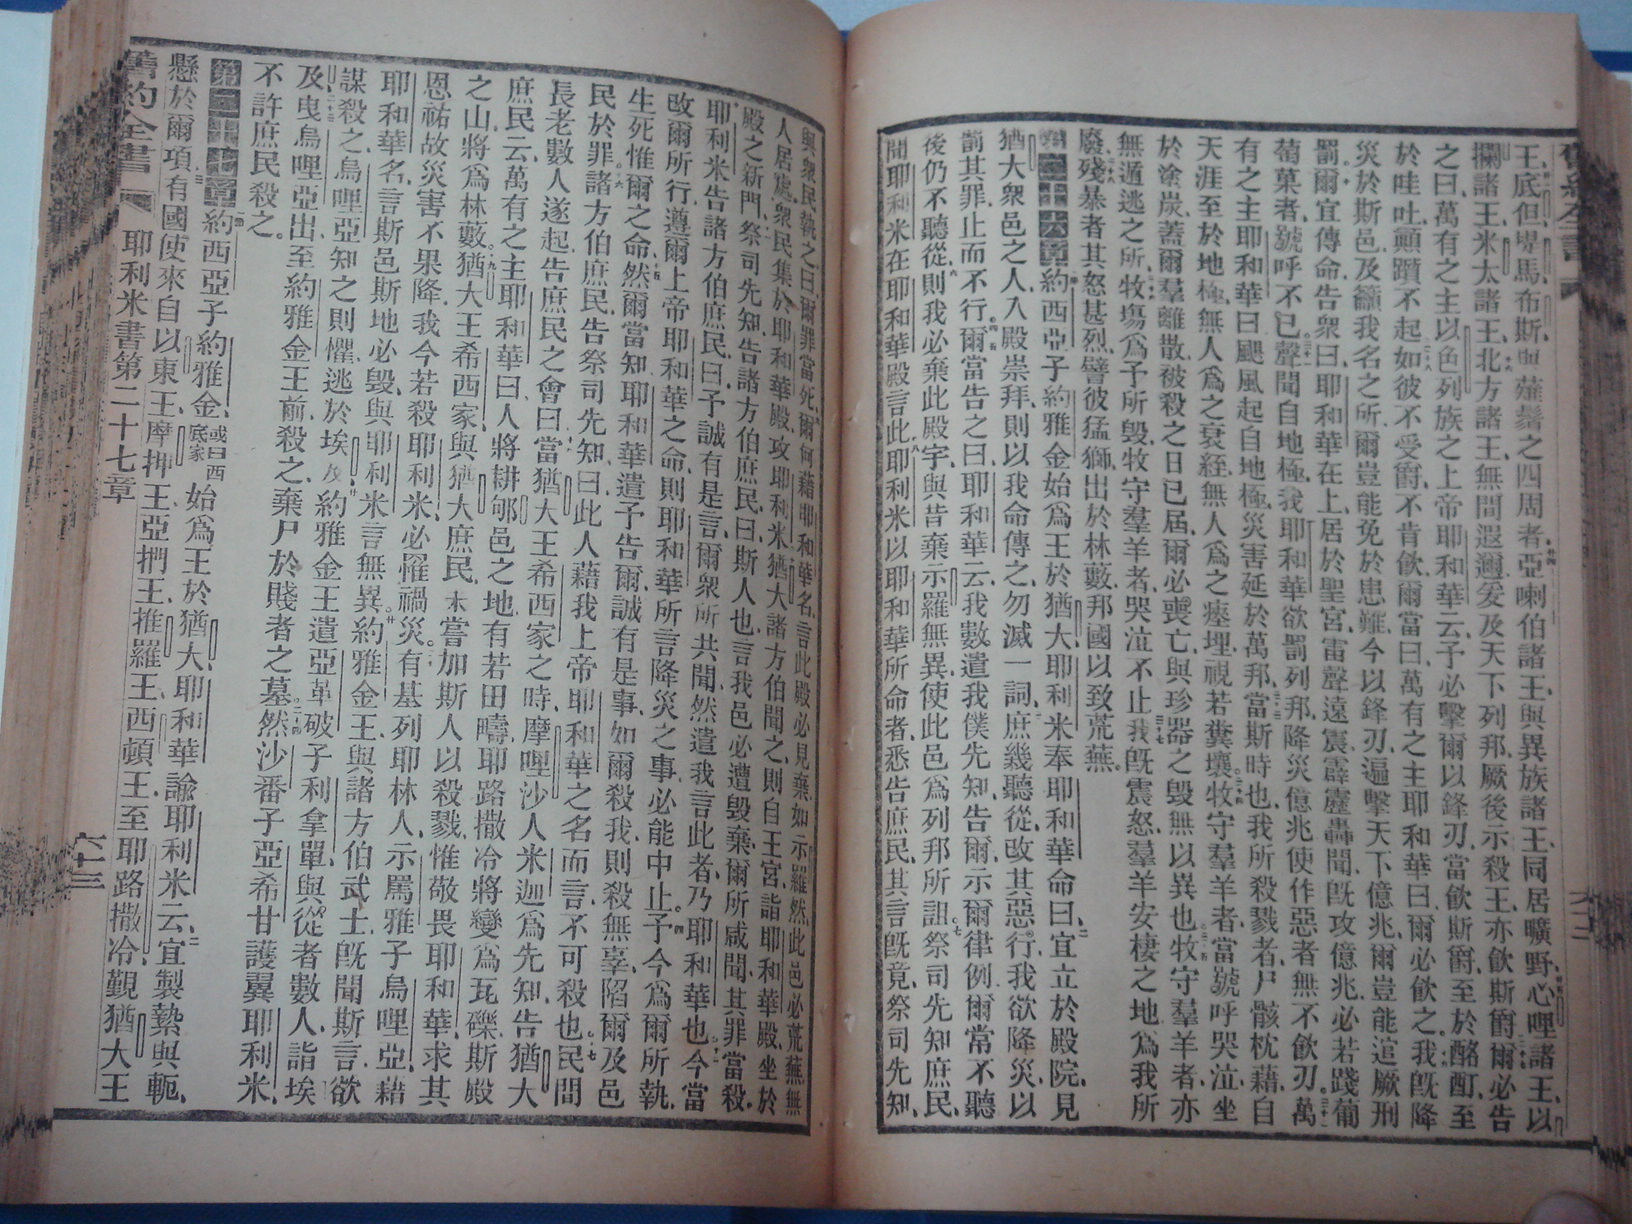 王、底但、堤馬、布斯、與薙鬚之四周者、亞喇伯諸王、與異族諸王、同居曠野、心哩諸王、以
攔諸王、米太諸王、北方諸王、無間遐邇、爰及天下列邦、厥後示殺王、亦飲斯爵、爾必告
之曰、萬有之主、以色列族之上帝耶和華云、予必擊爾以鋒刃、當飲斯爵、至於酩酊、至
於哇吐、顚躓不起、如彼不受爵、不肯飲、爾當曰、萬有之主耶和華曰、爾必飲之、我旣降
災於斯邑、及籲我名之所、爾豈能免於患難、今以鋒刃、遍擊天下億兆、爾豈能逭厥刑
罰、爾宜傳命告衆曰、耶和華在上、居於聖宮、雷聲遠震、霹靂轟聞、旣攻億兆、必若踐葡
萄菓者、號呼不已、聲聞自地極、我耶和華欲罰列邦、降災億兆、使作惡者、無不飮刃、萬
有之主耶和華曰、颶風起自地極、災害延於萬邦、當斯時也、我所殺戮者、尸骸枕藉、自
天涯至於地極、無人爲之衰絰、無人爲之瘞埋、視若糞壤、牧守羣羊者、當號呼哭泣、坐
於塗炭、蓋爾羣離散、被殺之日已屆、爾必喪亡、與珍器之毀無以異也、牧守羣羊者、亦
無遁逃之所、牧塲爲予所毀、牧守羣羊者、哭泣不止、我旣震怒、羣羊安棲之地、爲我所
廢、殘暴者其怒甚烈、譬彼猛獅、出於林藪、邦國以致荒蕪。
第二十六章 約西亞子約雅金、始爲王於猶大、耶利米奉耶和華命曰、宜立於殿院、見
猶大衆邑之人、入殿崇拜、則以我命傳之、勿滅一詞、庶幾聽從、改其惡行、我欲降災、以
罰其罪、止而不行、爾當告之曰、耶和華云、我數遣我僕先知、告爾、示爾律例、爾常不聽、
後仍不聽從、則我必棄此殿宇、與昔棄示羅無異、使此邑爲列邦所詛、祭司先知庶民、
聞耶利米在耶和華殿言此、耶利米以耶和華所命者、悉告庶民、其言旣竟、祭司先知、
與衆民執之曰、爾罪當死、爾何藉耶和華名、言此殿必見棄、如示羅然、此邑必荒蕪、無
人居處、衆民集於耶和華殿、攻耶利米、猶大諸方伯聞之、則自王宮、詣耶和華殿、坐於
殿之新門、祭司先知、告諸方伯庶民曰、斯人也、言我邑必遭毀棄、爾所咸聞、其罪當殺、
耶利米告諸方伯庶民曰、予誠有是言、爾衆所共聞、然遣我言此者、乃耶和華也、今當
改爾所行、遵爾上帝耶和華之命、則耶和華所言降災之事、必能中止。予今爲爾所執、
生死惟爾之命、然爾當知耶和華遣予告爾、誠有是事、如爾殺我、則殺無辜、陷爾及邑
民於罪、諸方伯庶民、告祭司先知曰、此人藉我上帝耶和華之名而言、不可殺也、民間
長老數人、遂起告庶民之會曰、當猶大王希西家之時、摩哩沙人米迦爲先知、告猶大
庶民云、萬有之主、耶和華曰、人將耕郇邑之地、有若田疇、耶路撒冷將變爲瓦礫、斯殿
之山、將爲林藪、猶大王希西家、與猶大庶民、未嘗加斯人以殺戮、惟敬畏耶和華、求其
恩祐、故災害不果降、我今若殺耶利米、必罹禍災。有基列耶林人、示罵雅子烏哩亞、藉
耶和華名、言斯邑斯地必毀、與耶利米言無異。約雅金王、與諸方伯武士、旣聞斯言、欲
謀殺之、烏哩亞知之則懼、逃於埃及、約雅金王遣亞革破子利拿單、與從者數人、詣埃
及、曳烏哩亞出、至約雅金王前、殺之、棄尸於賤者之墓、然沙番子亞希甘護翼耶利米、
不許庶民殺之。
第二十七章 約西亞子約雅金、或曰西底家 始爲王於猶大、耶和華諭耶利米云、宜製縶與軛、
懸於爾項、有國使來自以東王、摩押王、亞捫王、推羅王、西頓王、至耶路撒冷、覲猶大王
舊約全書 耶利米書第二十七章 六十三